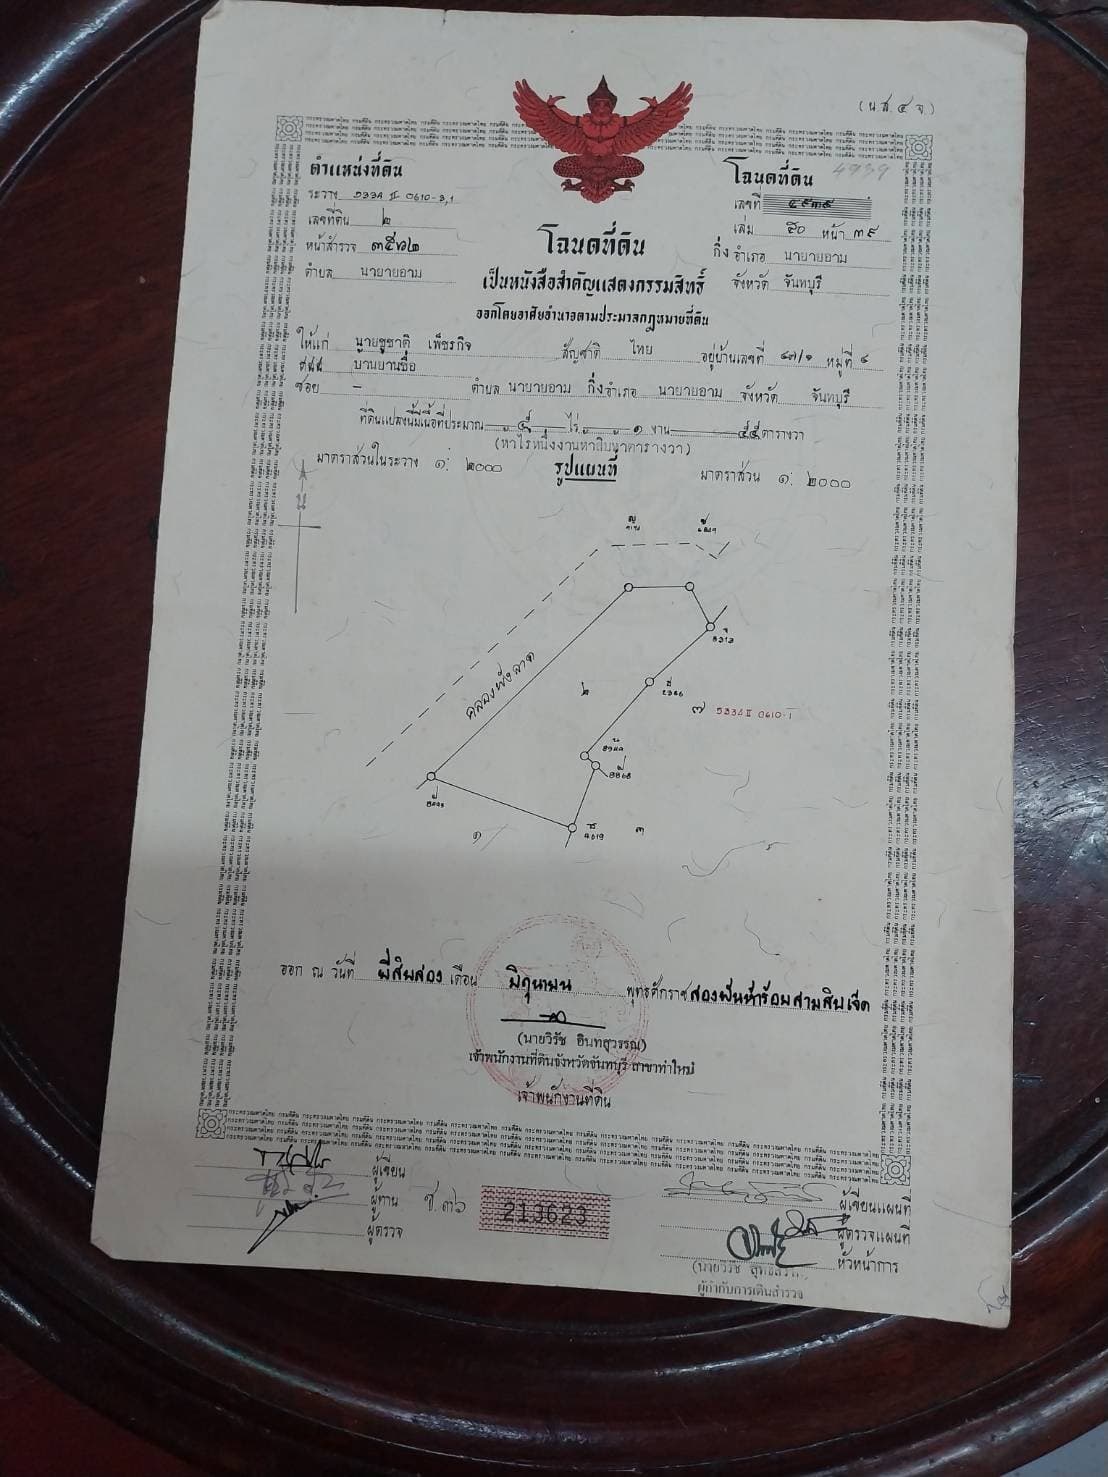 (น.ส. ๔ จ.)
ตำแหน่งที่ดิน
ระวาง 5334 II 0610-3,1
เลขที่ดิน ๒
หน้าสำรวจ
ตำบล นายายอาม
โฉนดที่ดิน 4939
เลขที่ ๔๙๓๙
เล่ม ๕๐ หน้า ๓๙
กิ่งอำเภอ นายายอาม
จังหวัด จันทบุรี
โฉนดที่ดิน
เป็นหนังสือสำคัญแสดงกรรมสิทธิ์
ออกโดยอาศัยอำนาจตามประมวลกฎหมายที่ดิน
ให้แก่ นายชูชาติ เพ็ชรกิจ สัญชาติ ไทย อยู่บ้านเลขที่ ๔๗/๑ หมู่ที่ ๔
บ้านยานซื่อ
ซอย – ตำบล นายายอาม กิ่งอำเภอ นายายอาม จังหวัด จันทบุรี
ที่ดินแปลงนี้มีเนื้อที่ประมาณ ๕ ไร่ ๑ งาน ๕๕ ตารางวา
(ห้าไร่หนึ่งงานห้าสิบห้าตารางวา)
มาตราส่วนในระวาง ๑: ๒๐๐๐ รูปแผนที่ มาตราส่วน ๑: ๒๐๐๐
น
คลองพังลาด
๒
๗ 5334 II 0610-1
๑
๓
ออก ณ วันที่ ยี่สิบสอง เดือน มิถุนายน พุทธศักราช สองพันห้าร้อยสามสิบเจ็ด
(นายวิรัช อินทสุวรรณ)
เจ้าพนักงานที่ดินจังหวัดจันทบุรี สาขาท่าใหม่
เจ้าพนักงานที่ดิน
ผู้เขียน
ผู้ทาน
ผู้ตรวจ
ช.๓๖
213623
ผู้เขียนแผนที่
ผู้ตรวจแผนที่
หัวหน้าการ
(นายวิรัช
ผู้กำกับการเดินสำรวจ